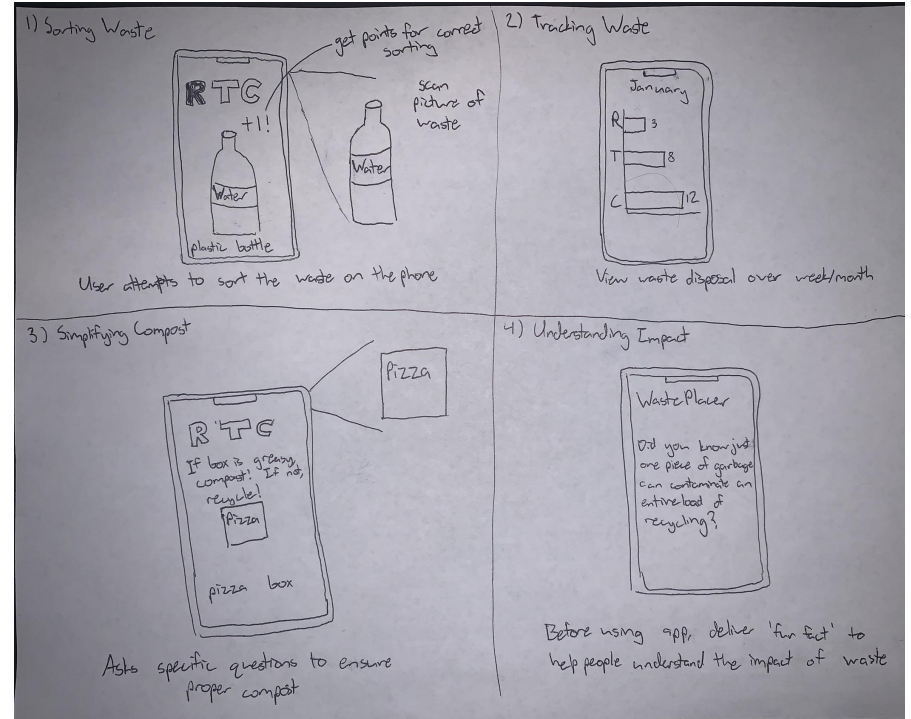 1) Sorting Waste
get points for correct
sorting
R T C
+1!
scan
picture of
waste
Water
Water
plastic bottle
User attempts to sort the waste on the phone
2) Tracking Waste
January
R 3
T 8
C 12
View waste disposal over week/month
3) Simplifying Compost
Pizza
R T C
If box is greasy,
compost! If not,
recycle!
Pizza
pizza box
Asks specific questions to ensure
proper compost
4) Understanding Impact
WastePlacer
Did you know just
one piece of garbage
can contaminate an
entire load of
recycling?
Before using app, deliver 'fun fact' to
help people understand the impact of waste